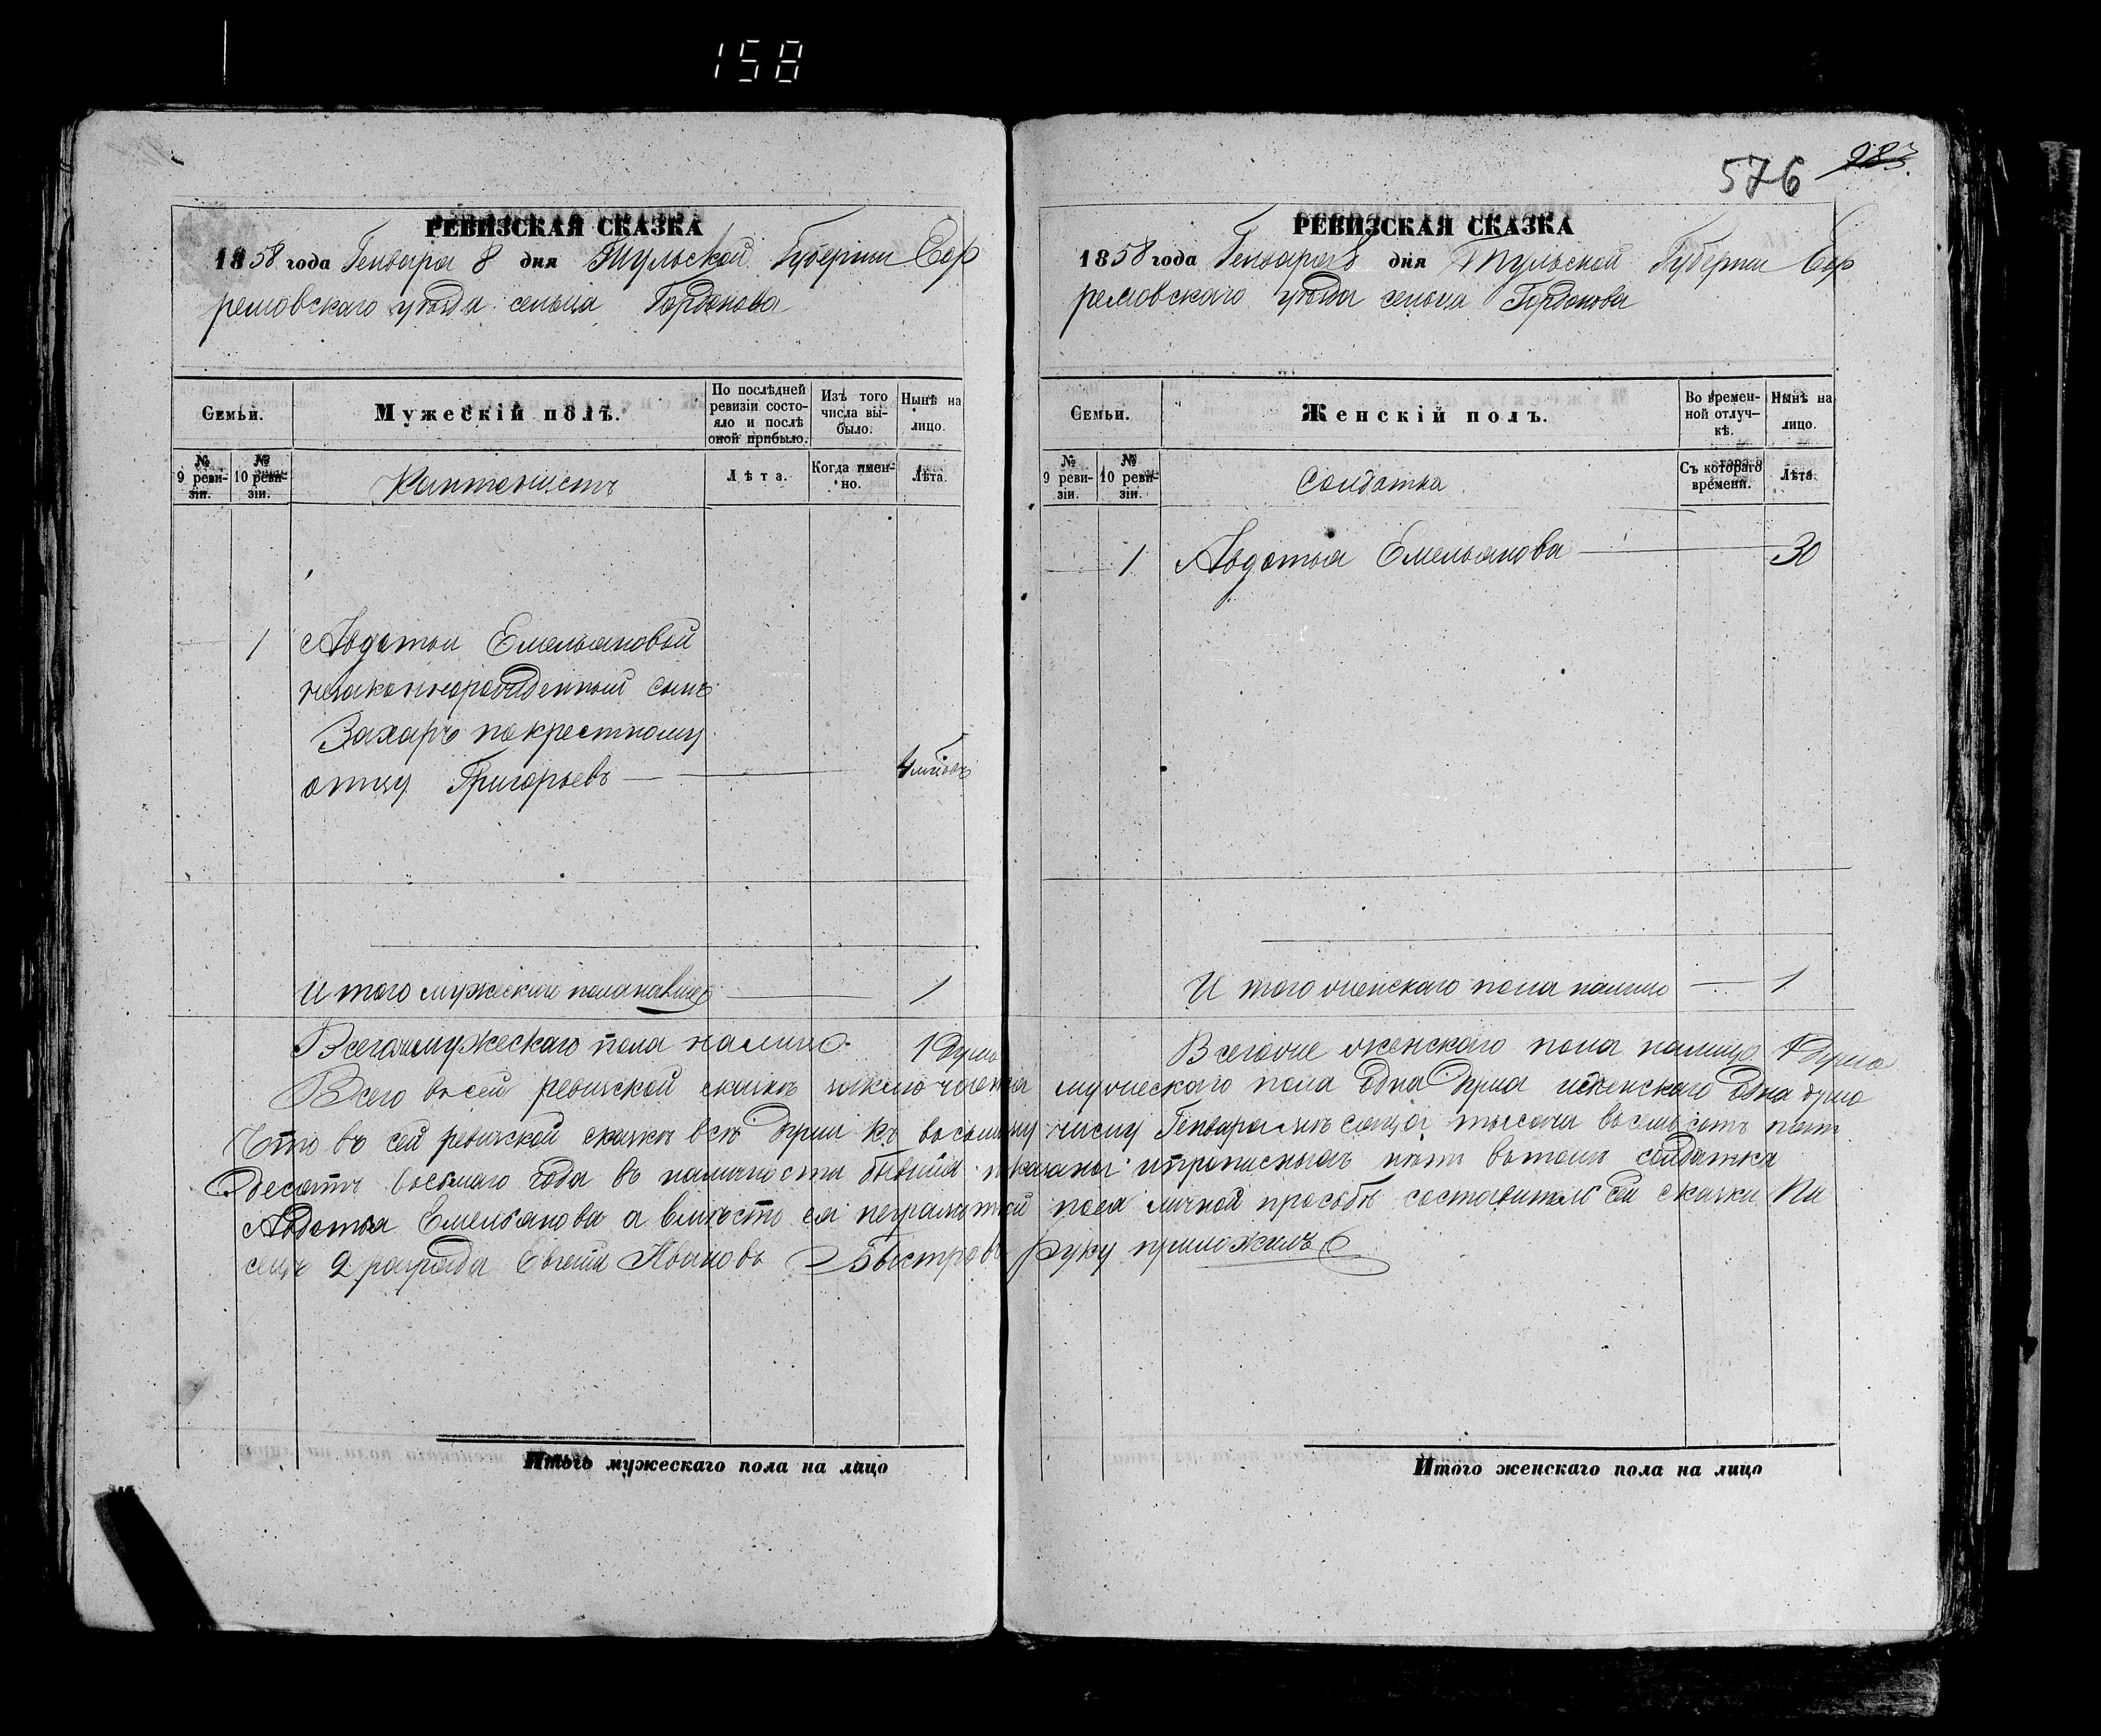 158
576
283.
РЕВИЗСКАЯ СКАЗКА
1858 года Генваря 8 дня Тульской Губерніи Еф
ремовскаго уѣзда сельца Гордонова
Семьи.
Мужескій полъ.
По послѣдней ревизіи состояло и послѣ оной прибыло.
Изъ того числа выбыло.
Нынѣ на лицо.
№ 9 ревизіи.
№ 10 ревизіи.
Кантонистъ
Лѣта.
Когда именно.
Лѣта.
1 Авдотьи Емельяновой
незаконнорожденный сынъ
Захаръ по крестному
отцу Григорьевъ
Итого мужескаго пола налицо 1
Всегоже мужескаго пола налицо 1 душа
РЕВИЗСКАЯ СКАЗКА
1858 года Генваря 8 дня Тульской Губерніи Еф
ремовскаго уѣзда сельца Гордонова
Семьи.
Женскій полъ.
Во временной отлучкѣ.
Нынѣ на лицо.
№ 9 ревизіи.
№ 10 ревизіи.
Солдатка
Съ котораго времени.
Лѣта.
1 Авдотья Емельянова 30
Итого женскаго пола налицо 1
Всегоже женскаго пола налицо 1 душа
Всего въ сей ревизской сказкѣ заключается мужескаго пола одна душа и женскаго одна душа
Что въ сей ревизской сказкѣ всѣ души къ восьмому числу Генваря мѣсяца тысяча восемьсотъ пять
десятъ восьмаго года въ наличности бывшія показаны и прописныхъ нѣтъ въ томъ солдатка
Авдотья Емельянова а вмѣсто ея неграмотной по ея личной просьбѣ составитель сей сказки Пи
сецъ 2 разряда Евгеній Ивановъ Быстровъ руку приложилъ
Итого мужескаго пола на лицо
Итого женскаго пола на лицо